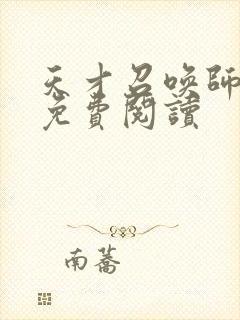 天才召喚師
免費閱讀
南蕎